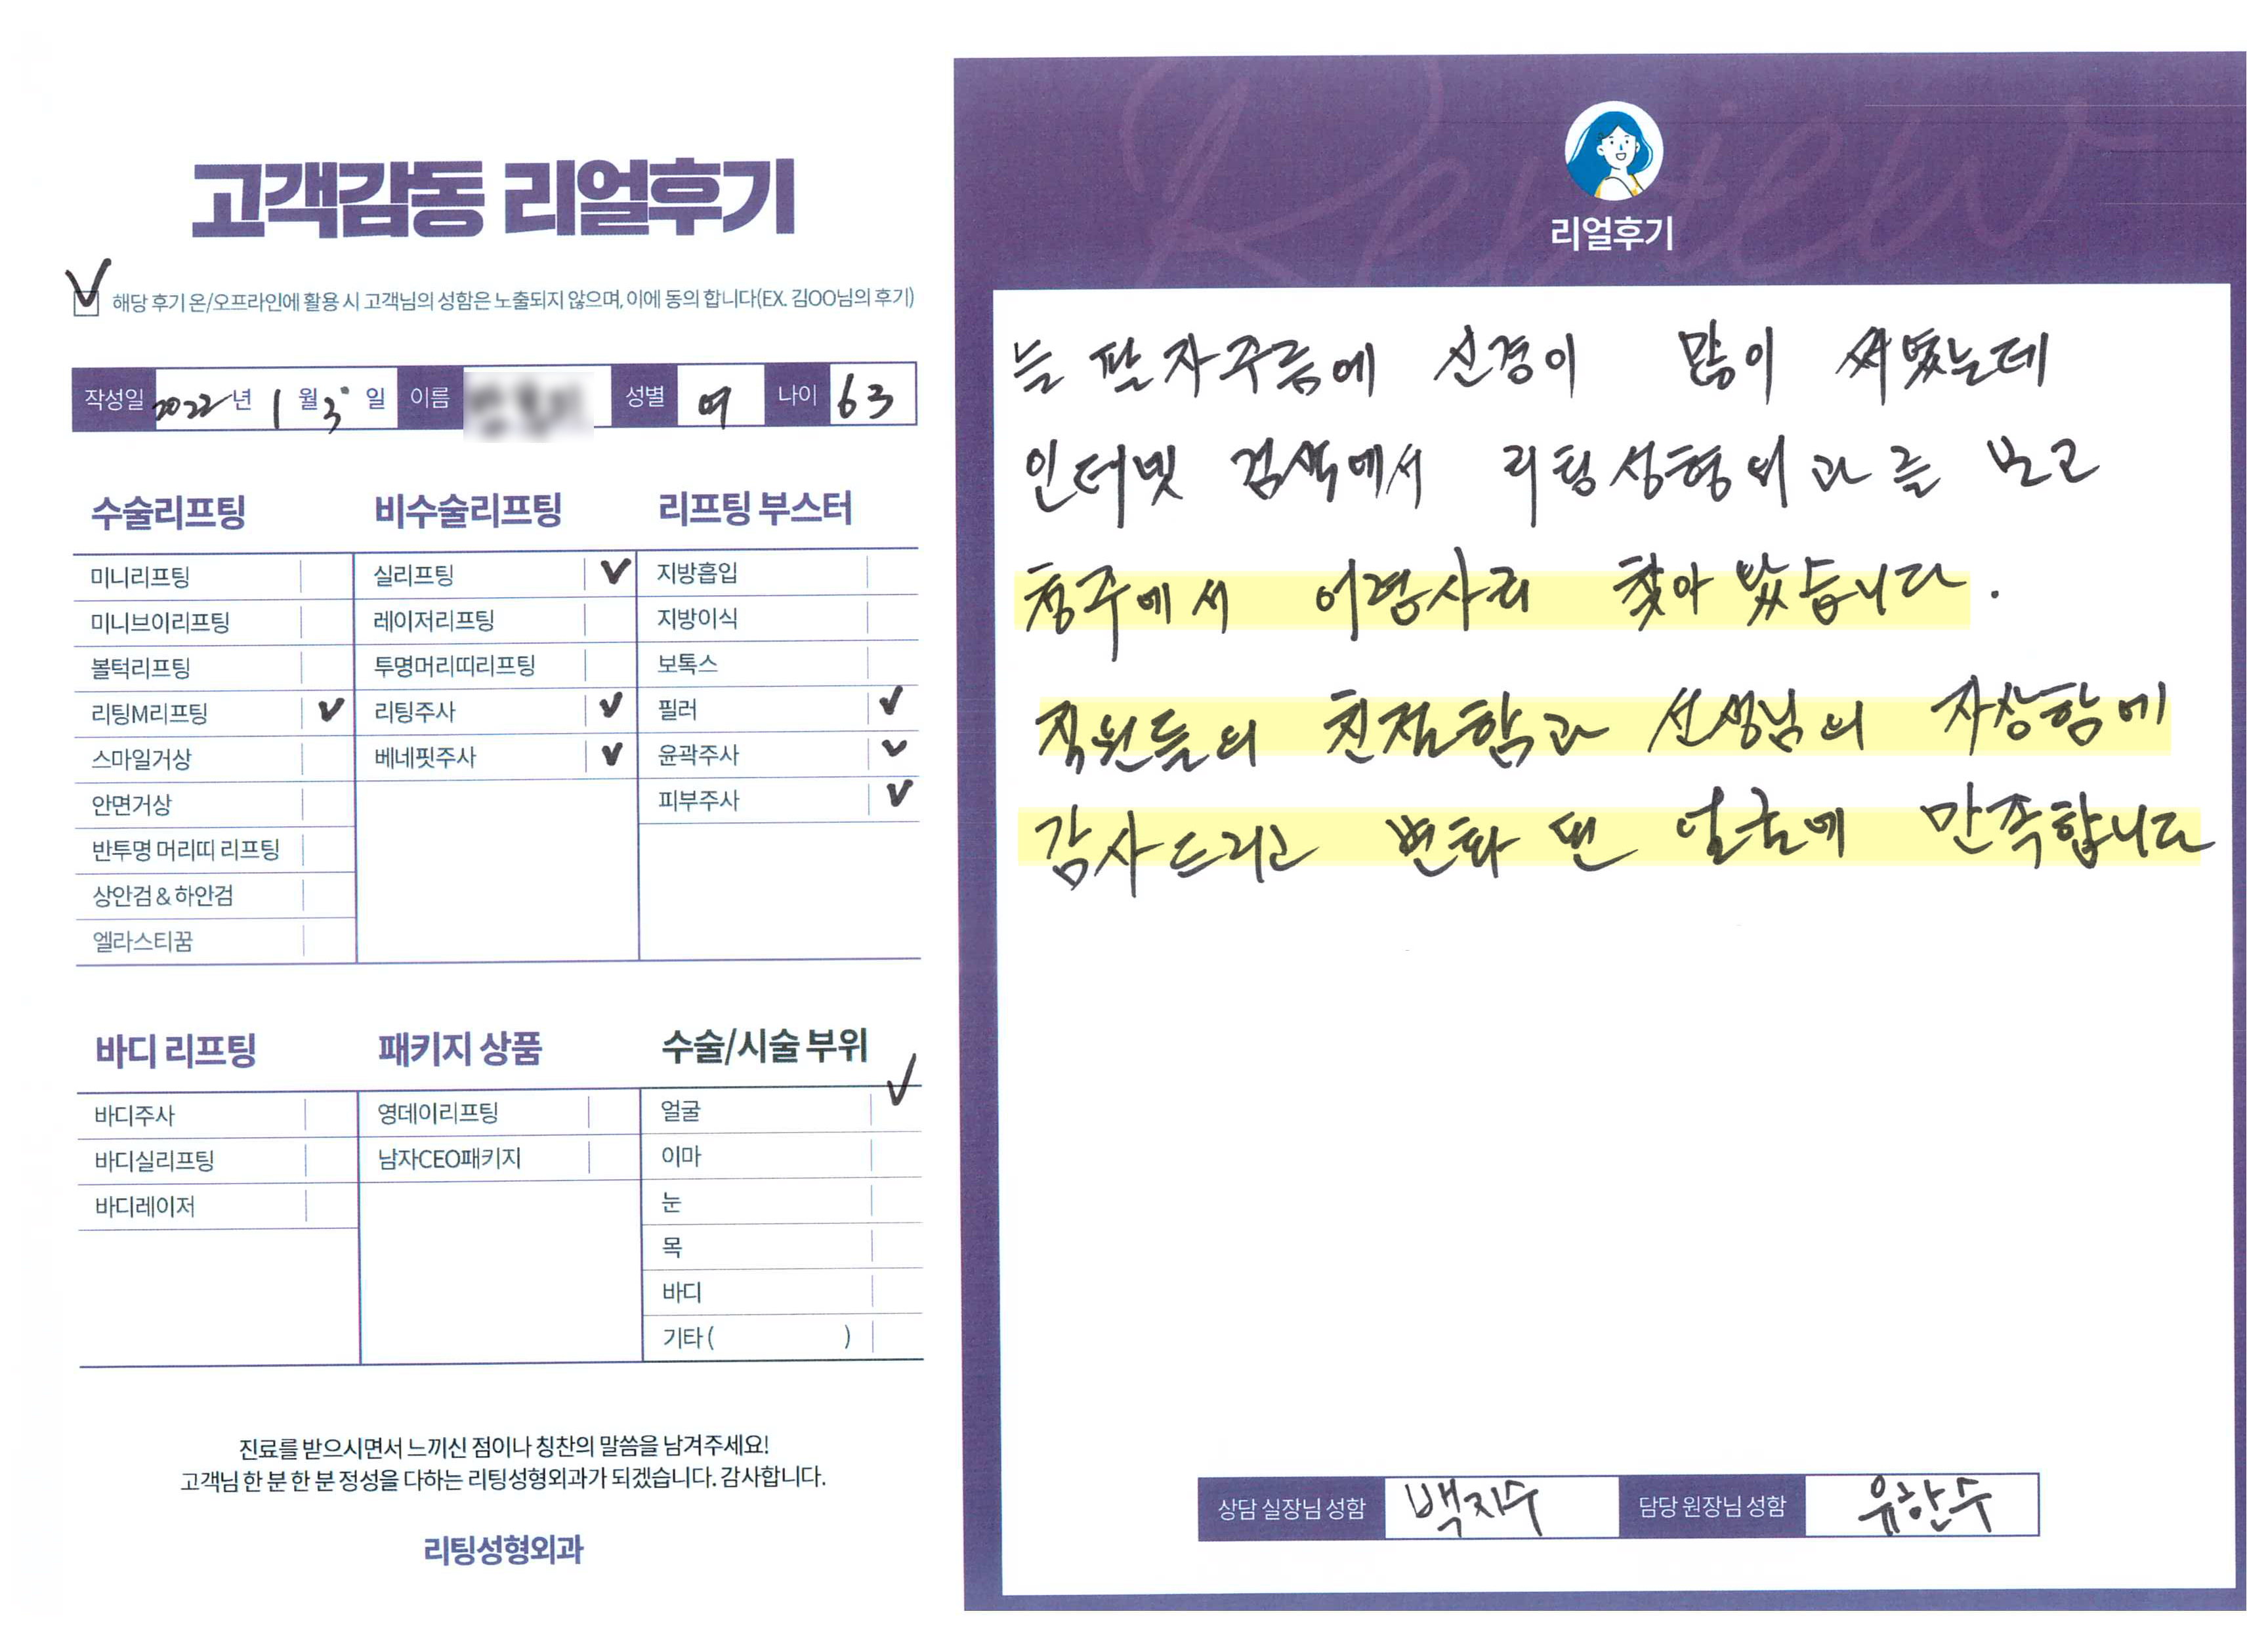 고객감동 리얼후기
해당 후기 온/오프라인에 활용 시 고객님의 성함은 노출되지 않으며, 이에 동의 합니다(EX. 김OO님의 후기)
작성일 2022년 1월 3일 이름 성별 여 나이 63
수술리프팅
미니리프팅
미니브이리프팅
볼턱리프팅
리팅M리프팅 V
스마일거상
안면거상
반투명 머리띠 리프팅
상안검 & 하안검
엘라스티꿈
비수술리프팅
실리프팅 V
레이저리프팅
투명머리띠리프팅
리팅주사 V
베네핏주사 V
리프팅 부스터
지방흡입
지방이식
보톡스
필러 V
윤곽주사 V
피부주사 V
바디 리프팅
바디주사
바디실리프팅
바디레이저
패키지 상품
영데이리프팅
남자CEO패키지
수술/시술 부위
얼굴 V
이마
눈
목
바디
기타 ( )
진료를 받으시면서 느끼신 점이나 칭찬의 말씀을 남겨주세요!
고객님 한 분 한 분 정성을 다하는 리팅성형외과가 되겠습니다. 감사합니다.
리팅성형외과
Review
리얼후기
늘 팔자주름에 신경이 많이 써졌는데
인터넷 검색에서 리팅성형외과를 보고
청주에서 어렵사리 찾아 왔습니다.
직원들의 친절함과 선생님의 자상함에
감사드리고 변화 된 얼굴에 만족합니다
상담 실장님 성함 백지수 담당 원장님 성함 유한수